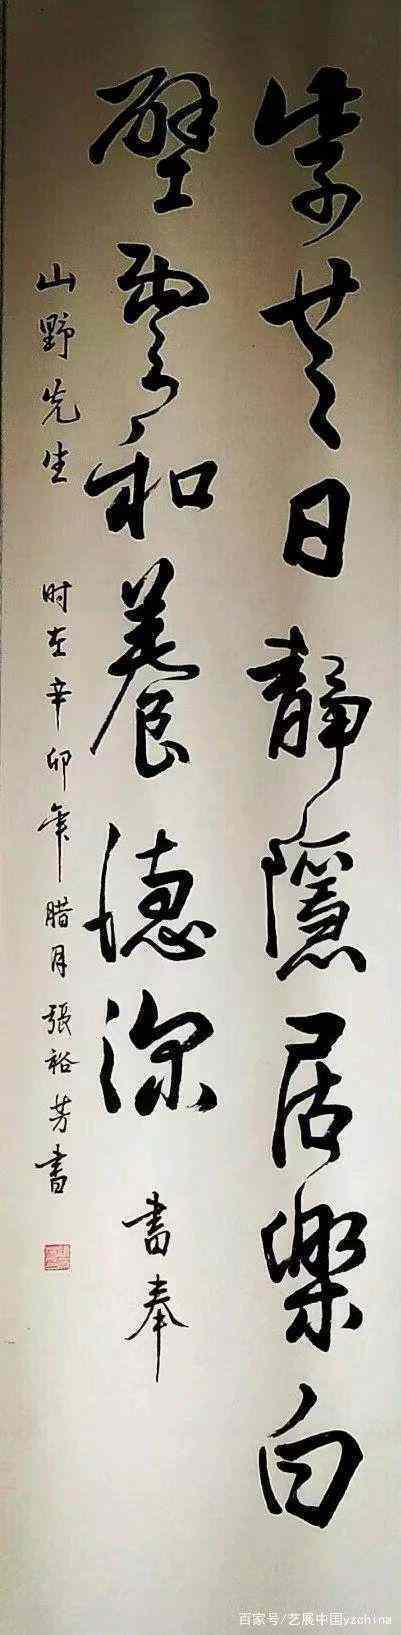 紫芝日静隐居乐白
璧云和养德深 书奉
山野先生 时在辛卯年腊月 張裕芳書
百家号/艺展中国yzchina